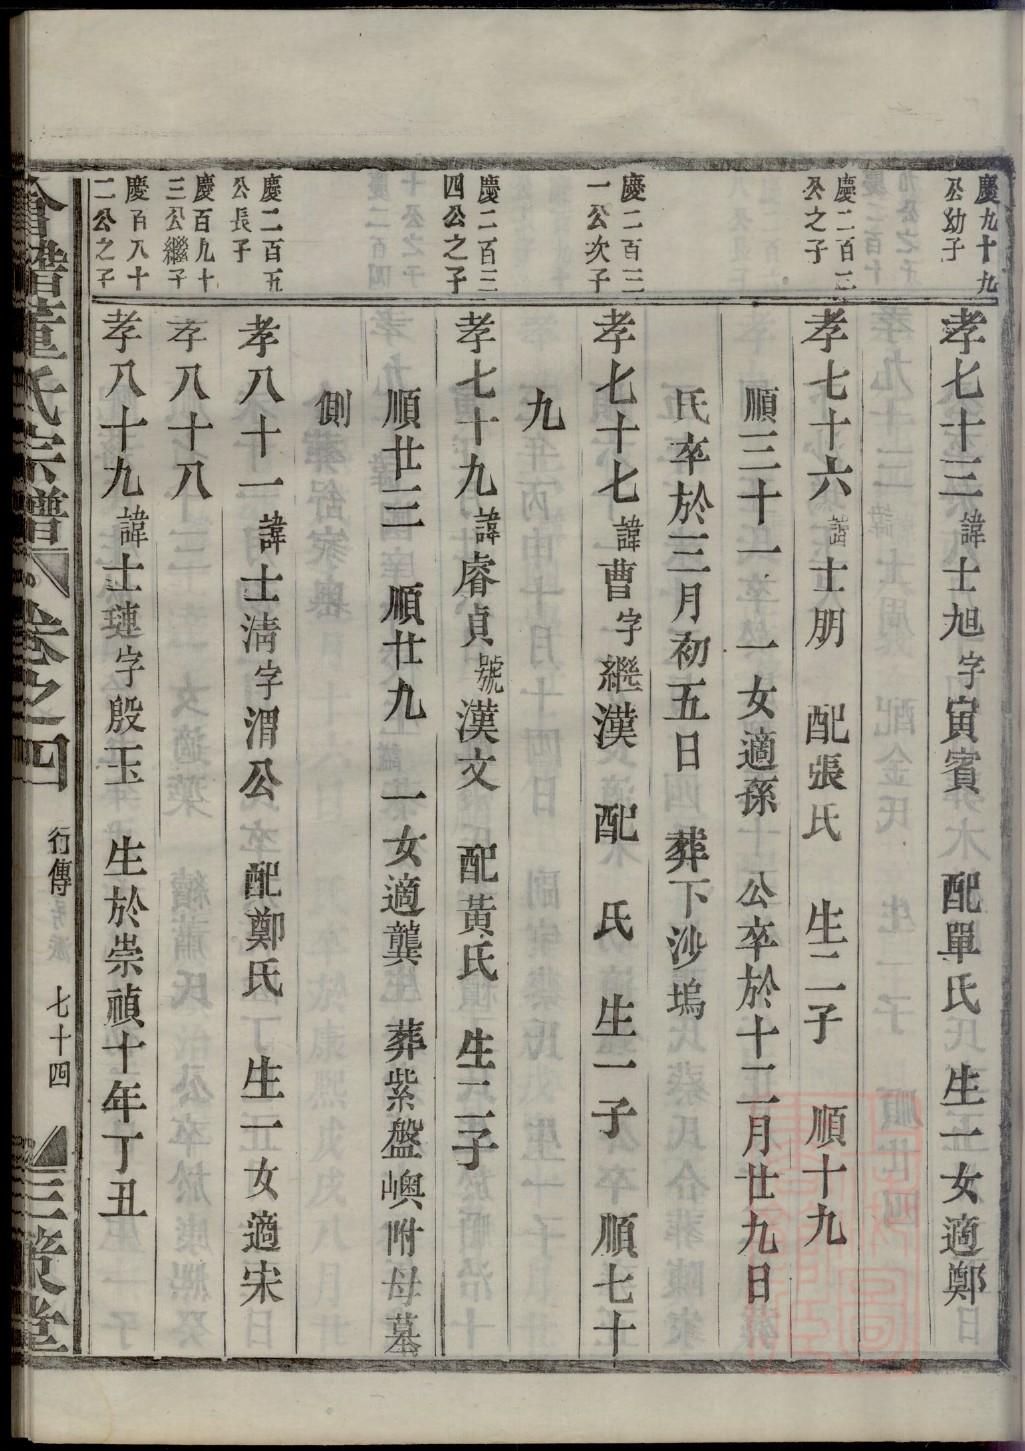 慶九十九
公幼子
孝七十三諱士旭字寅賓 配單氏 生一女適鄭
慶二百三
公之子
孝七十六諱士朋 配張氏 生二子 順十九
順三十一 一女適孫 公卒於十二月廿九日
氏卒於三月初五日 葬下沙塢
慶二百三
一公次子
孝七十七諱曹字繼漢 配 氏 生一子 順七十
九
慶二百三
四公之子
孝七十九諱睿貞號漢文 配黃氏 生二子
順廿三 順廿九 一女適龔 葬紫盤嶼附母墓
側
慶二百五
公長子
孝八十一諱士淸字渭公 配鄭氏 生一女適宋
慶百九十
三公繼子
孝八十八
慶百八十
二公之子
孝八十九諱士璉字殷玉 生於崇禎十年丁丑
會稽董氏宗譜 卷之四 行傳 七十四 三策堂